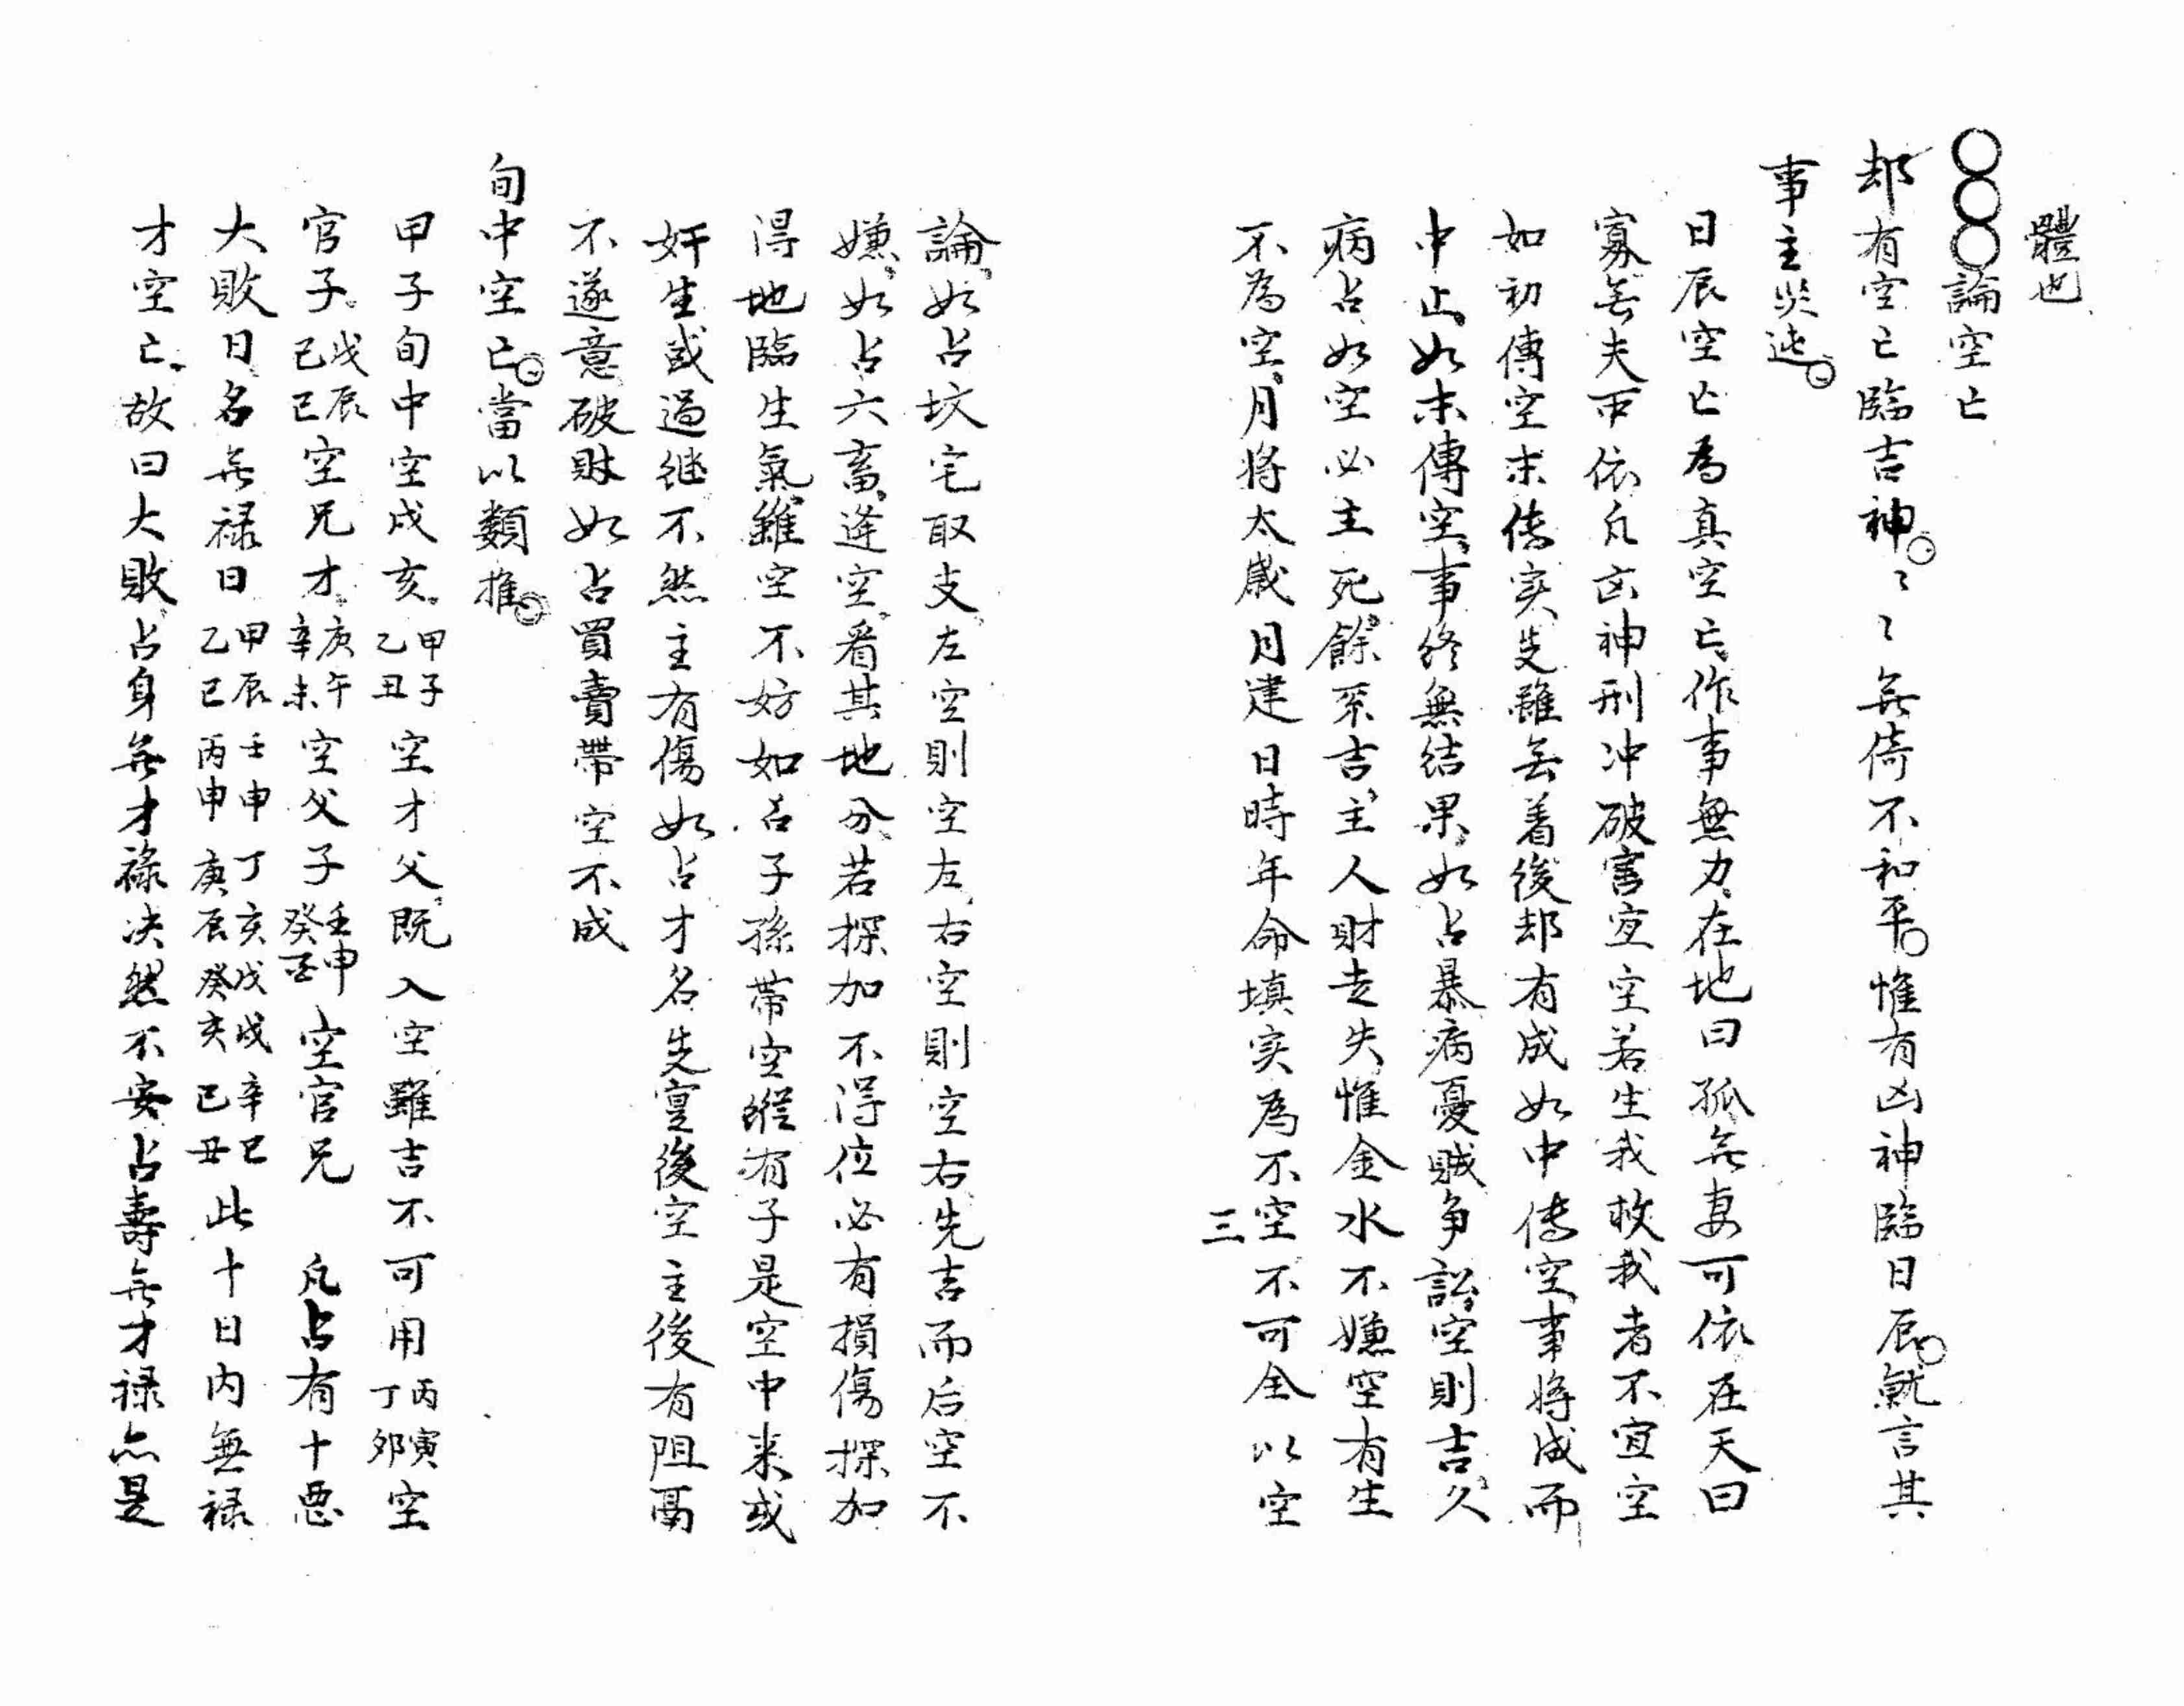 體也
○○○論空亡
却有空亡臨吉神○〻〻無倚不和平○惟有凶神臨日辰○就言其
事主災迍○
日辰空亡為真空亡作事無力在地曰孤無妻可依在天曰
寡無夫可依凡凶神刑冲破害宜空若生我救我者不宜空
如初傳空末傳实先雖無着後却有成如中傳空事將成而
中止如末傳空事終無結果如占暴病憂賊争訟空則吉久
病占如空必主死餘系吉主人財走失惟金水不嫌空有生
不為空月将太歲月建日時年命填实為不空不可全以空
三
論如占坟宅取支左空則空左右空則空右先吉而后空不
嫌如占六畜逢空看其地分若探加不得位必有損傷探加
得地臨生氣雖空不妨如占子孫帶空縱有子是空中来或
奸生或過継不然主有傷如占才名先寔後空主後有阻鬲
不遂意破財如占買賣帶空不成
旬中空亡○當以類推○
甲子旬中空戌亥甲子乙丑空才父既入空雖吉不可用丙寅丁卯空
官子戊辰己巳空兄才庚午辛未空父子壬申癸酉空官兄 凡占有十惡
大敗日名無禄日甲辰乙巳壬申丙申丁亥庚辰戊戌癸亥辛巳己丑此十日内無禄
才空亡故曰大敗占身無才祿决然不安占壽無才禄亦是